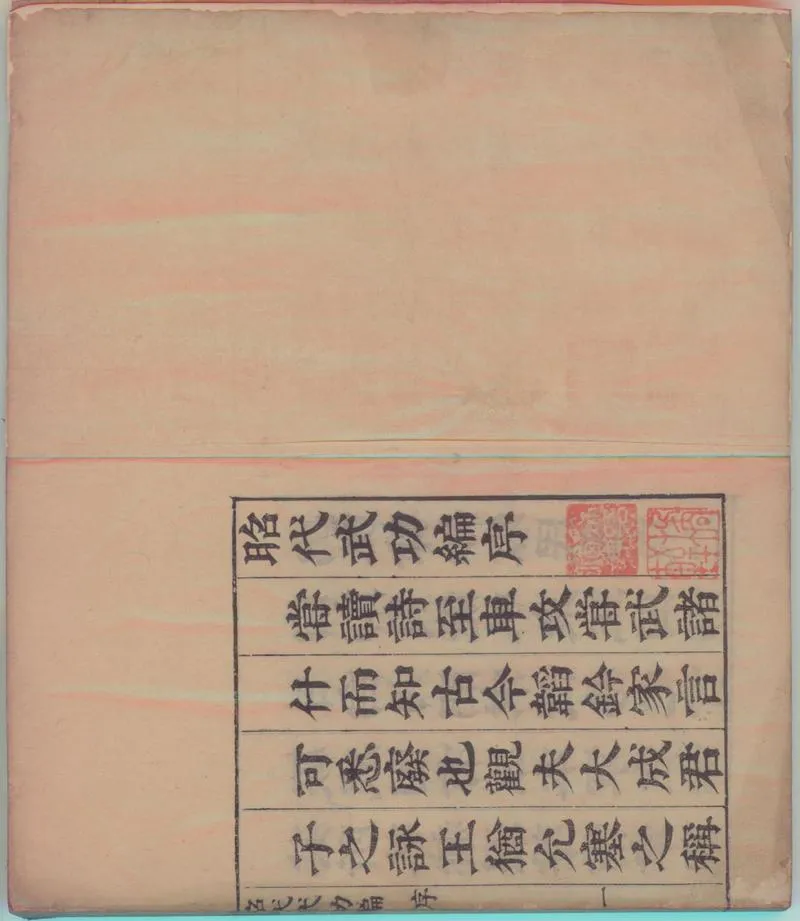 昭代武功編序
嘗讀詩至車攻常武諸
什而知古今韜鈐家言
可悉廢也觀夫大成君
子之詠王猶允塞之稱
昭代武功編 序 一